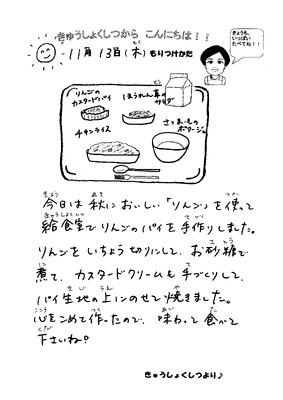 きゅうしょくしつから こんにちは!!
きょうも、
いっぱい
たべてね!!
11月 13日(木) もりつけかた
りんごの
カスタードパイ
ほうれん草の
サラダ
チキンライス
さつまいもの
ポタージュ
今日は 秋においしい「りんご」を使って
給食室でりんごのパイを手作りしました。
りんごをいちょう切りにして、お砂糖で
煮て、カスタードクリームも手づくりして、
パイ生地の上にのせて焼きました。
心をこめて作ったので、味わって食べて
下さいね♡
きゅうしょくしつより♪